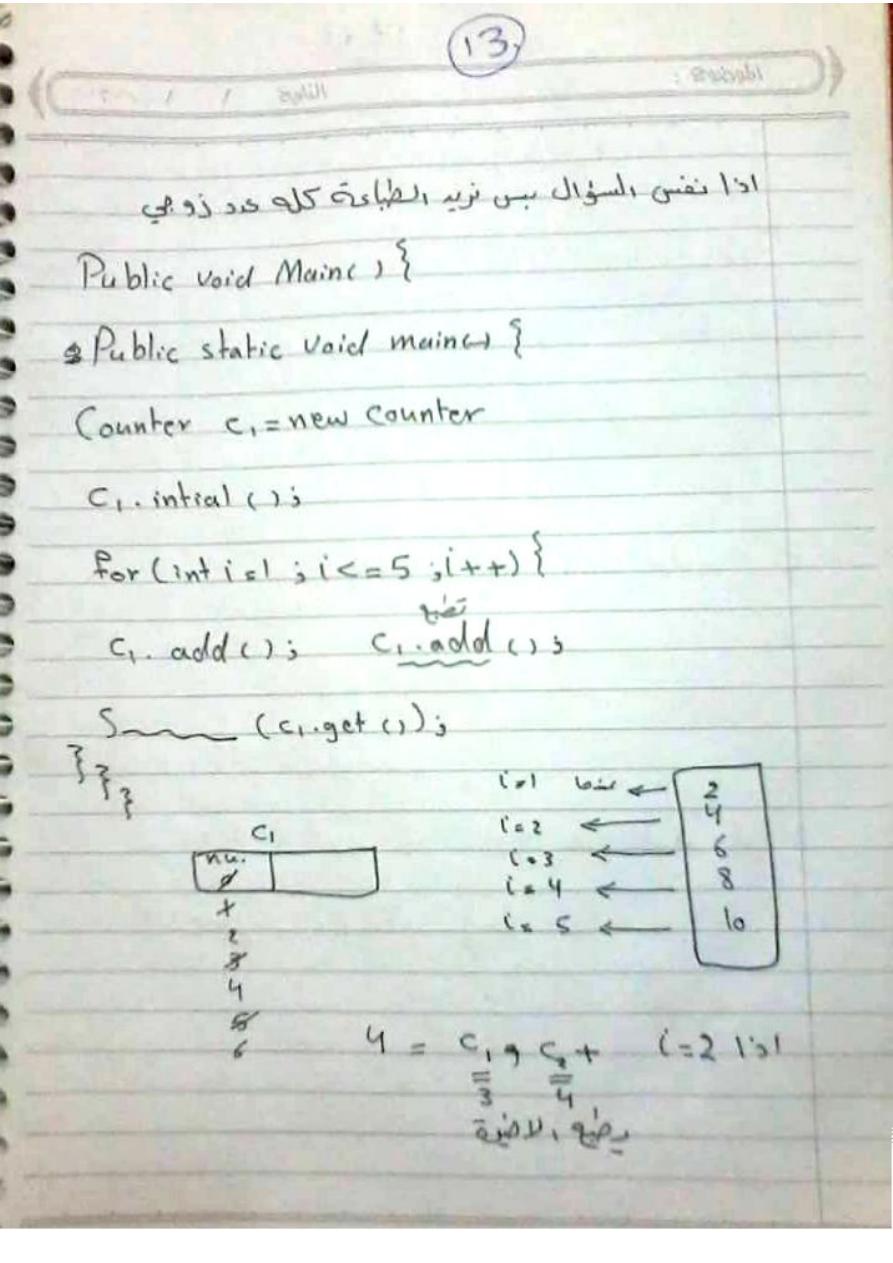 13
الموضوع :
التاريخ / /
اذا نفس السؤال بس نريد الطباعة كله عدد زوجي
Public void Main( ) {
Public static void main( ) {
Counter c1 = new Counter
C1. intial ( ) ;
for (int i=1 ; i<=5 ; i++) {
تطبع
C1. add ( ) ; C1.add ( ) ;
S (c1.get ( )) ;
}
}
}
i=1 عندما ← 2
i=2 ← 4
i=3 ← 6
i=4 ← 8
i=5 ← 10
C1
nu.
0
1
2
3
4
5
6
4 = C1 و C + i=2 اذا
3 4
يطبع الاخيرة